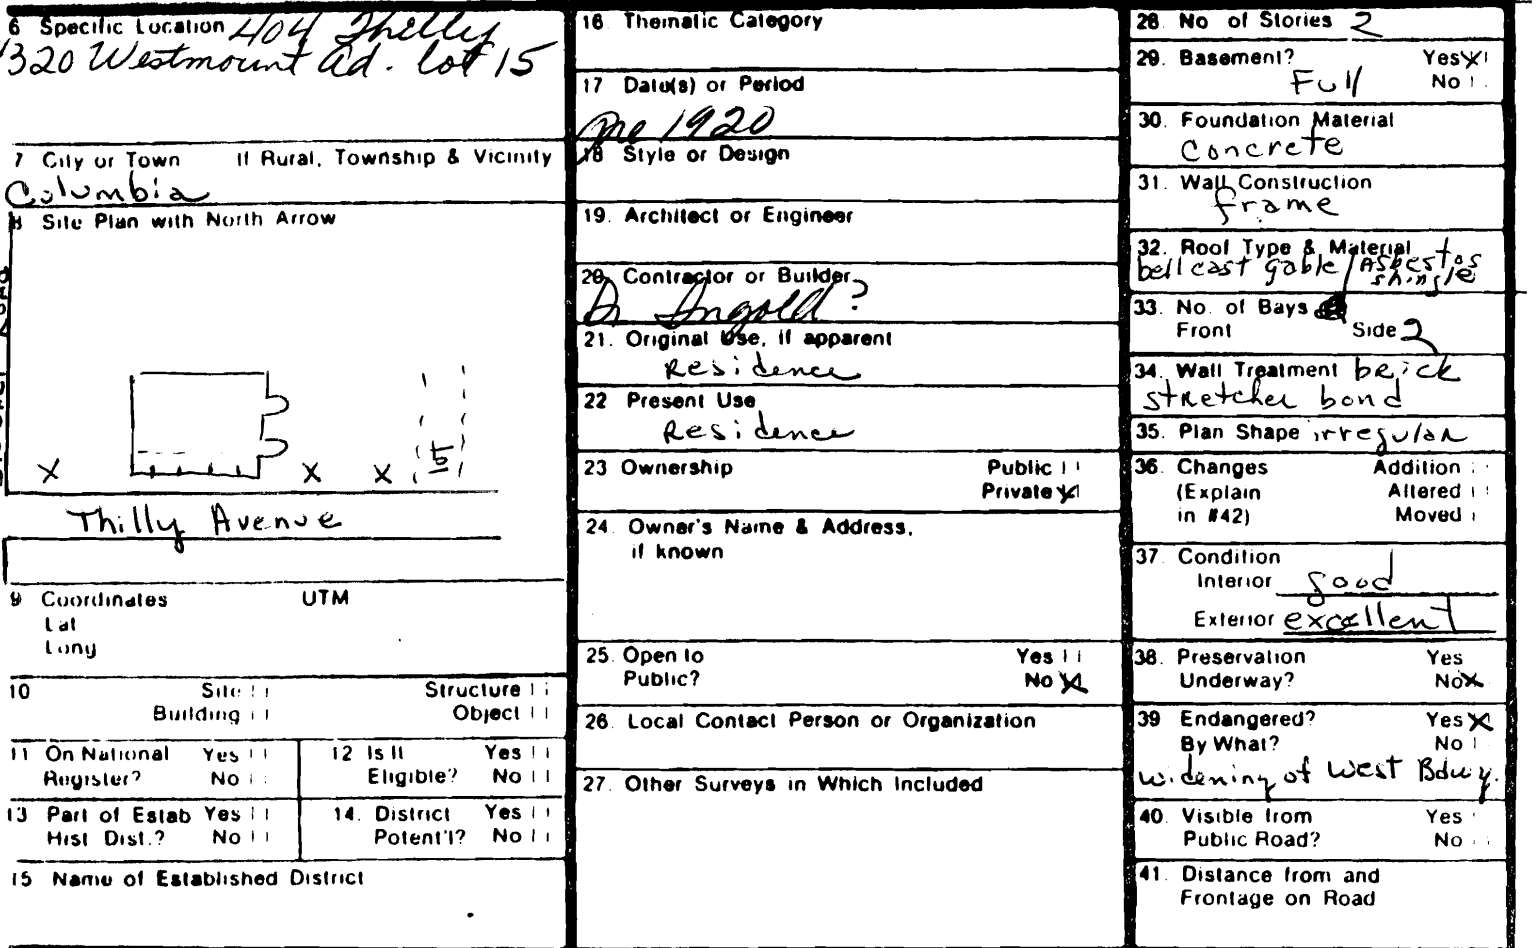 6 Specific Location 404 Thilly
1320 Westmount ad. lot 15
7 City or Town If Rural, Township & Vicinity
Columbia
8 Site Plan with North Arrow
Thilly Avenue
9 Coordinates UTM
Lat
Long
10 Site Structure
Building Object
11 On National Register? Yes No
12 Is It Eligible? Yes No
13 Part of Estab Hist Dist.? Yes No
14. District Potent'l? Yes No
15 Name of Established District
16. Thematic Category
17 Date(s) or Period
pre 1920
18 Style or Design
19. Architect or Engineer
20 Contractor or Builder
Dr Ingold?
21. Original Use, if apparent
Residence
22 Present Use
Residence
23 Ownership Public
Private X
24. Owner's Name & Address,
if known
25. Open to Yes
Public? No X
26. Local Contact Person or Organization
27. Other Surveys in Which Included
28. No of Stories 2
29. Basement? Yes X
Full No
30. Foundation Material
Concrete
31. Wall Construction
frame
32. Roof Type & Material
bellcast gable / Asbestos
shingle
33. No. of Bays
Front Side 2
34. Wall Treatment brick
stretcher bond
35. Plan Shape irregular
36. Changes Addition
(Explain Altered
in #42) Moved
37. Condition
Interior good
Exterior excellent
38. Preservation Yes
Underway? No X
39 Endangered? Yes X
By What? No
widening of West Bdwy.
40. Visible from Yes
Public Road? No
41. Distance from and
Frontage on Road